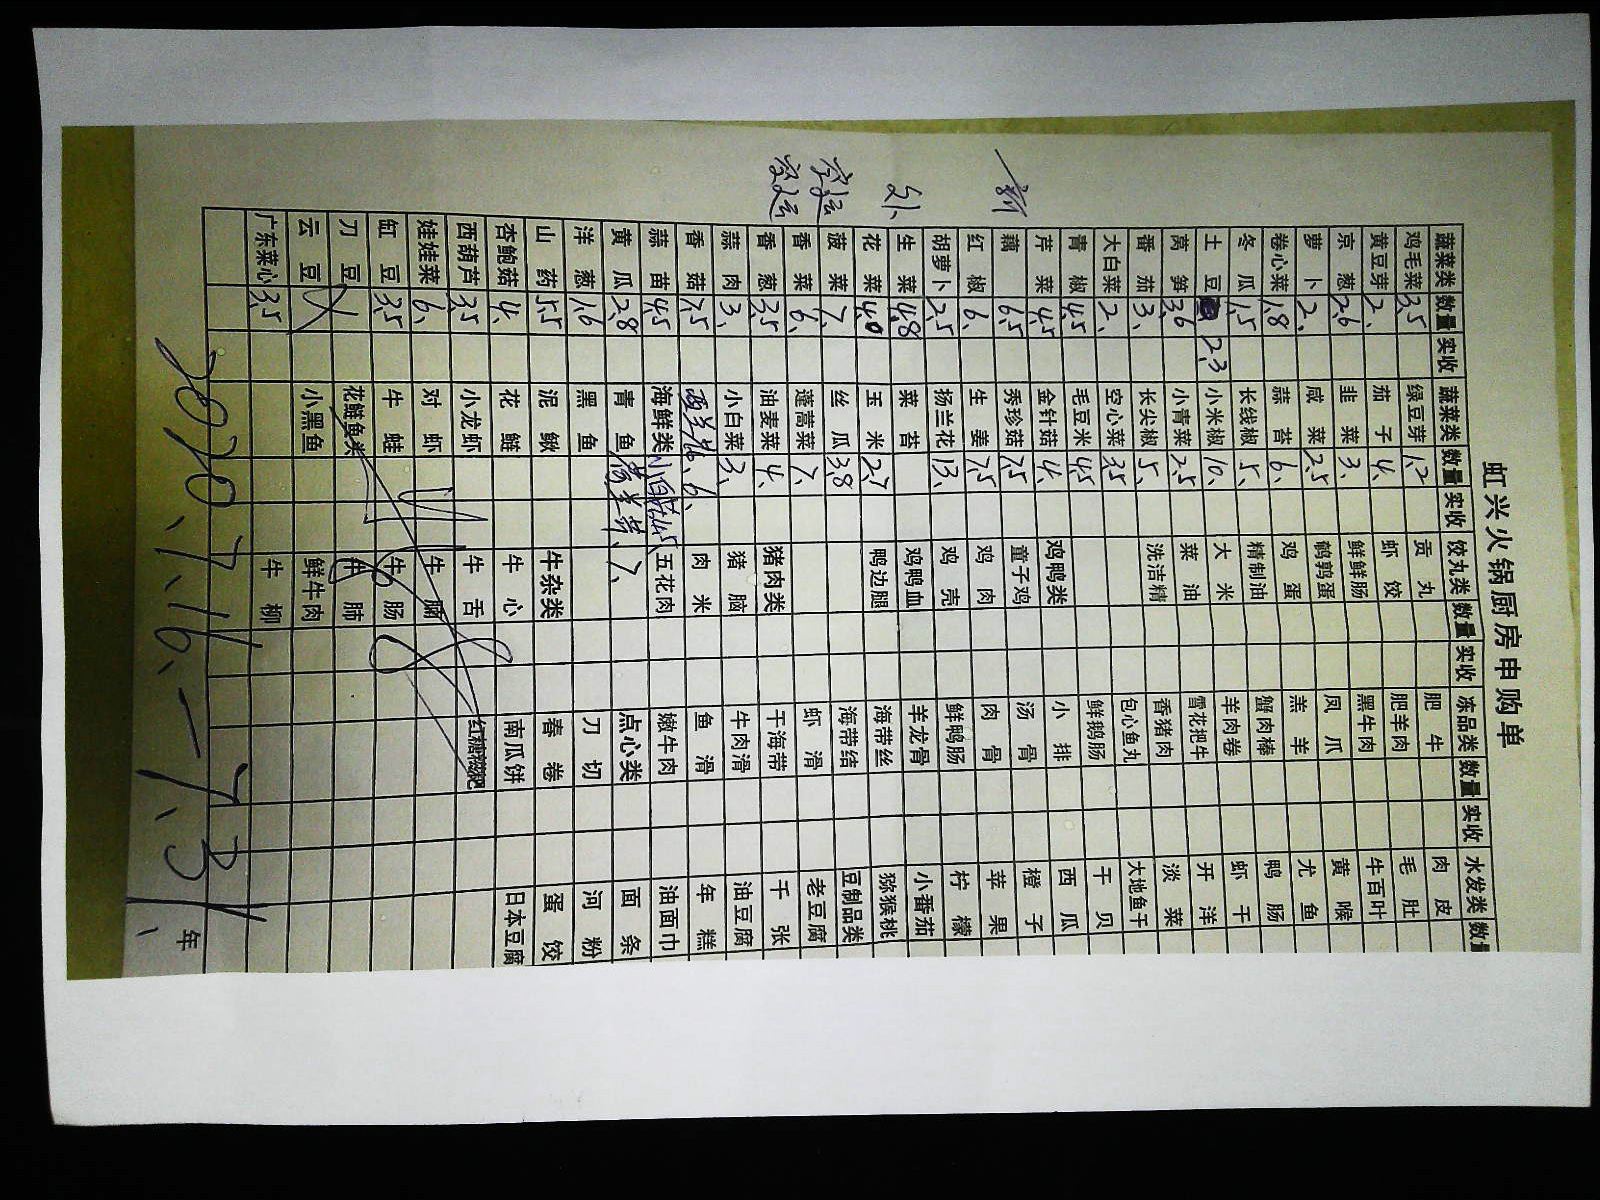 虹兴火锅厨房申购单
蔬菜类 数量 实收 蔬菜类 数量 实收 饺丸类 数量 实收 冻品类 数量 实收 水发类 数量
鸡毛菜 3.5 绿豆芽 1.2 贡丸 肥牛 肉皮
黄豆芽 2. 茄子 4. 虾饺 肥羊肉 毛肚
京葱 2.6 韭菜 3. 鲜鲜肠 黑牛肉 牛百叶
萝卜 2. 咸菜 2.5 鹌鹑蛋 凤爪 黄喉
卷心菜 1.8 蒜苔 6. 鸡蛋 羔羊 尤鱼
冬瓜 1.5 长线椒 5. 精制油 蟹肉棒 鸭肠
土豆 2.3 小米椒 10. 大米 羊肉卷 虾干
莴笋 3.6 小青菜 2.5 菜油 雪花把牛 开洋
番茄 3. 长尖椒 5. 洗洁精 香猪肉 淡菜
大白菜 2. 空心菜 3.5 包心鱼丸 大地鱼干
青椒 4.5 毛豆米 4.5 鲜鹅肠 干贝
芹菜 4.5 金针菇 4. 鸡鸭类 小排 西瓜
藕 6.5 秀珍菇 7.5 童子鸡 汤骨 橙子
红椒 6. 生姜 7.5 鸡肉 肉骨 苹果
胡萝卜 2.5 扬兰花 13. 鸡壳 鲜鸭肠 柠檬
生菜 4.8 菜苔 鸡鸭血 羊龙骨 小番茄
花菜 4.0 玉米 2.7 鸭边腿 海带丝 猕猴桃
菠菜 7. 丝瓜 3.8 海带结 豆制品类
香菜 6. 蓬蒿菜 7. 虾滑 老豆腐
香葱 3.5 油麦菜 4. 猪肉类 干海带 千张
蒜肉 3. 小白菜 3. 猪脑 牛肉滑 油豆腐
香菇 7.5 西兰花 6. 肉米 鱼滑 年糕
蒜苗 4.5 海鲜类 小白菇4.5 五花肉 嫩牛肉 油面巾
黄瓜 2.8 青鱼 7. 点心类 面条
洋葱 1.6 黑鱼 刀切 河粉
山药 5.5 泥鳅 牛杂类 春卷 蛋饺
杏鲍菇 4. 花鲢 牛心 南瓜饼 日本豆腐
西葫芦 3.5 小龙虾 牛舌 红糖糍粑
娃娃菜 6. 对虾 牛腩
缸豆 3.5 牛蛙 牛肠
刀豆 花鲢鱼头 牛肺
云豆 小黑鱼 鲜牛肉
广东菜心 3.5 牛柳
2020.7.16.—7.31. 年